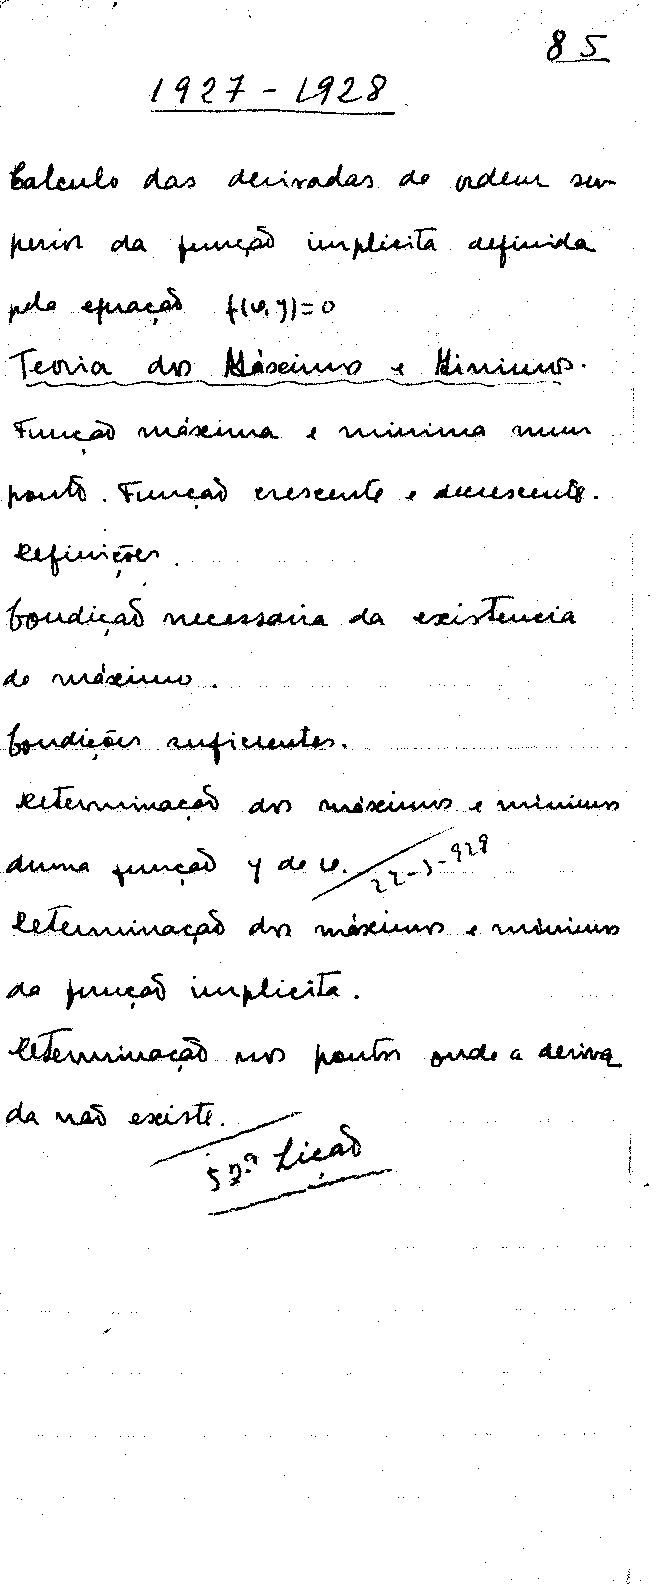 85
1927-1928
Calculo das derivadas de ordem su-
perior da função implicita definida
pela equação f(x,y)=0
Teoria dos Máximos e Minimos.
Função máxima e minima num
ponto. Função crescente e decrescente.
Definições.
Condição necessaria da existencia
de máximo.
Condições suficientes.
Determinação dos máximos e mínimos
duma função y de x.
22-3-928
Determinação dos máximos e mínimos
da função implicita.
Determinação nos pontos onde a deriva
da não existe.
Lição